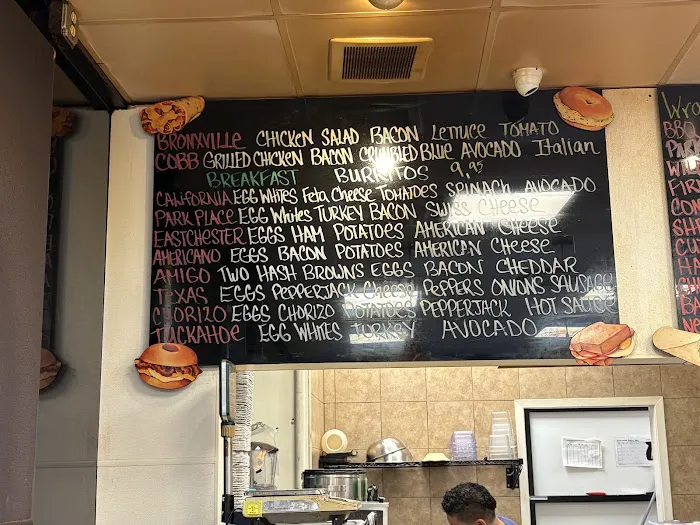 BRONXVILLE CHICKEN SALAD BACON LETTUCE TOMATO
COBB GRILLED CHICKEN BACON CRUMBLED BLUE AVOCADO Italian
BREAKFAST BURRITOS 9.95
CALIFORNIA EGG WHITES Feta Cheese TOMATOES SPINACH AVOCADO
PARK PLACE EGG Whites TURKEY BACON SWISS CHEESE
EASTCHESTER EGGS HAM POTATOES AMERICAN CHEESE
AMERICANO EGGS BACON POTATOES AMERICAN CHEESE
AMIGO TWO HASH BROWNS EGGS BACON CHEDDAR
TEXAS EGGS PEPPERJACK Cheese PEPPERS ONIONS SAUSAGE
CHORIZO EGGS CHORIZO POTATOES PEPPERJACK HOT SAUCE
TUCKAHOE EGG WHITES TURKEY AVOCADO